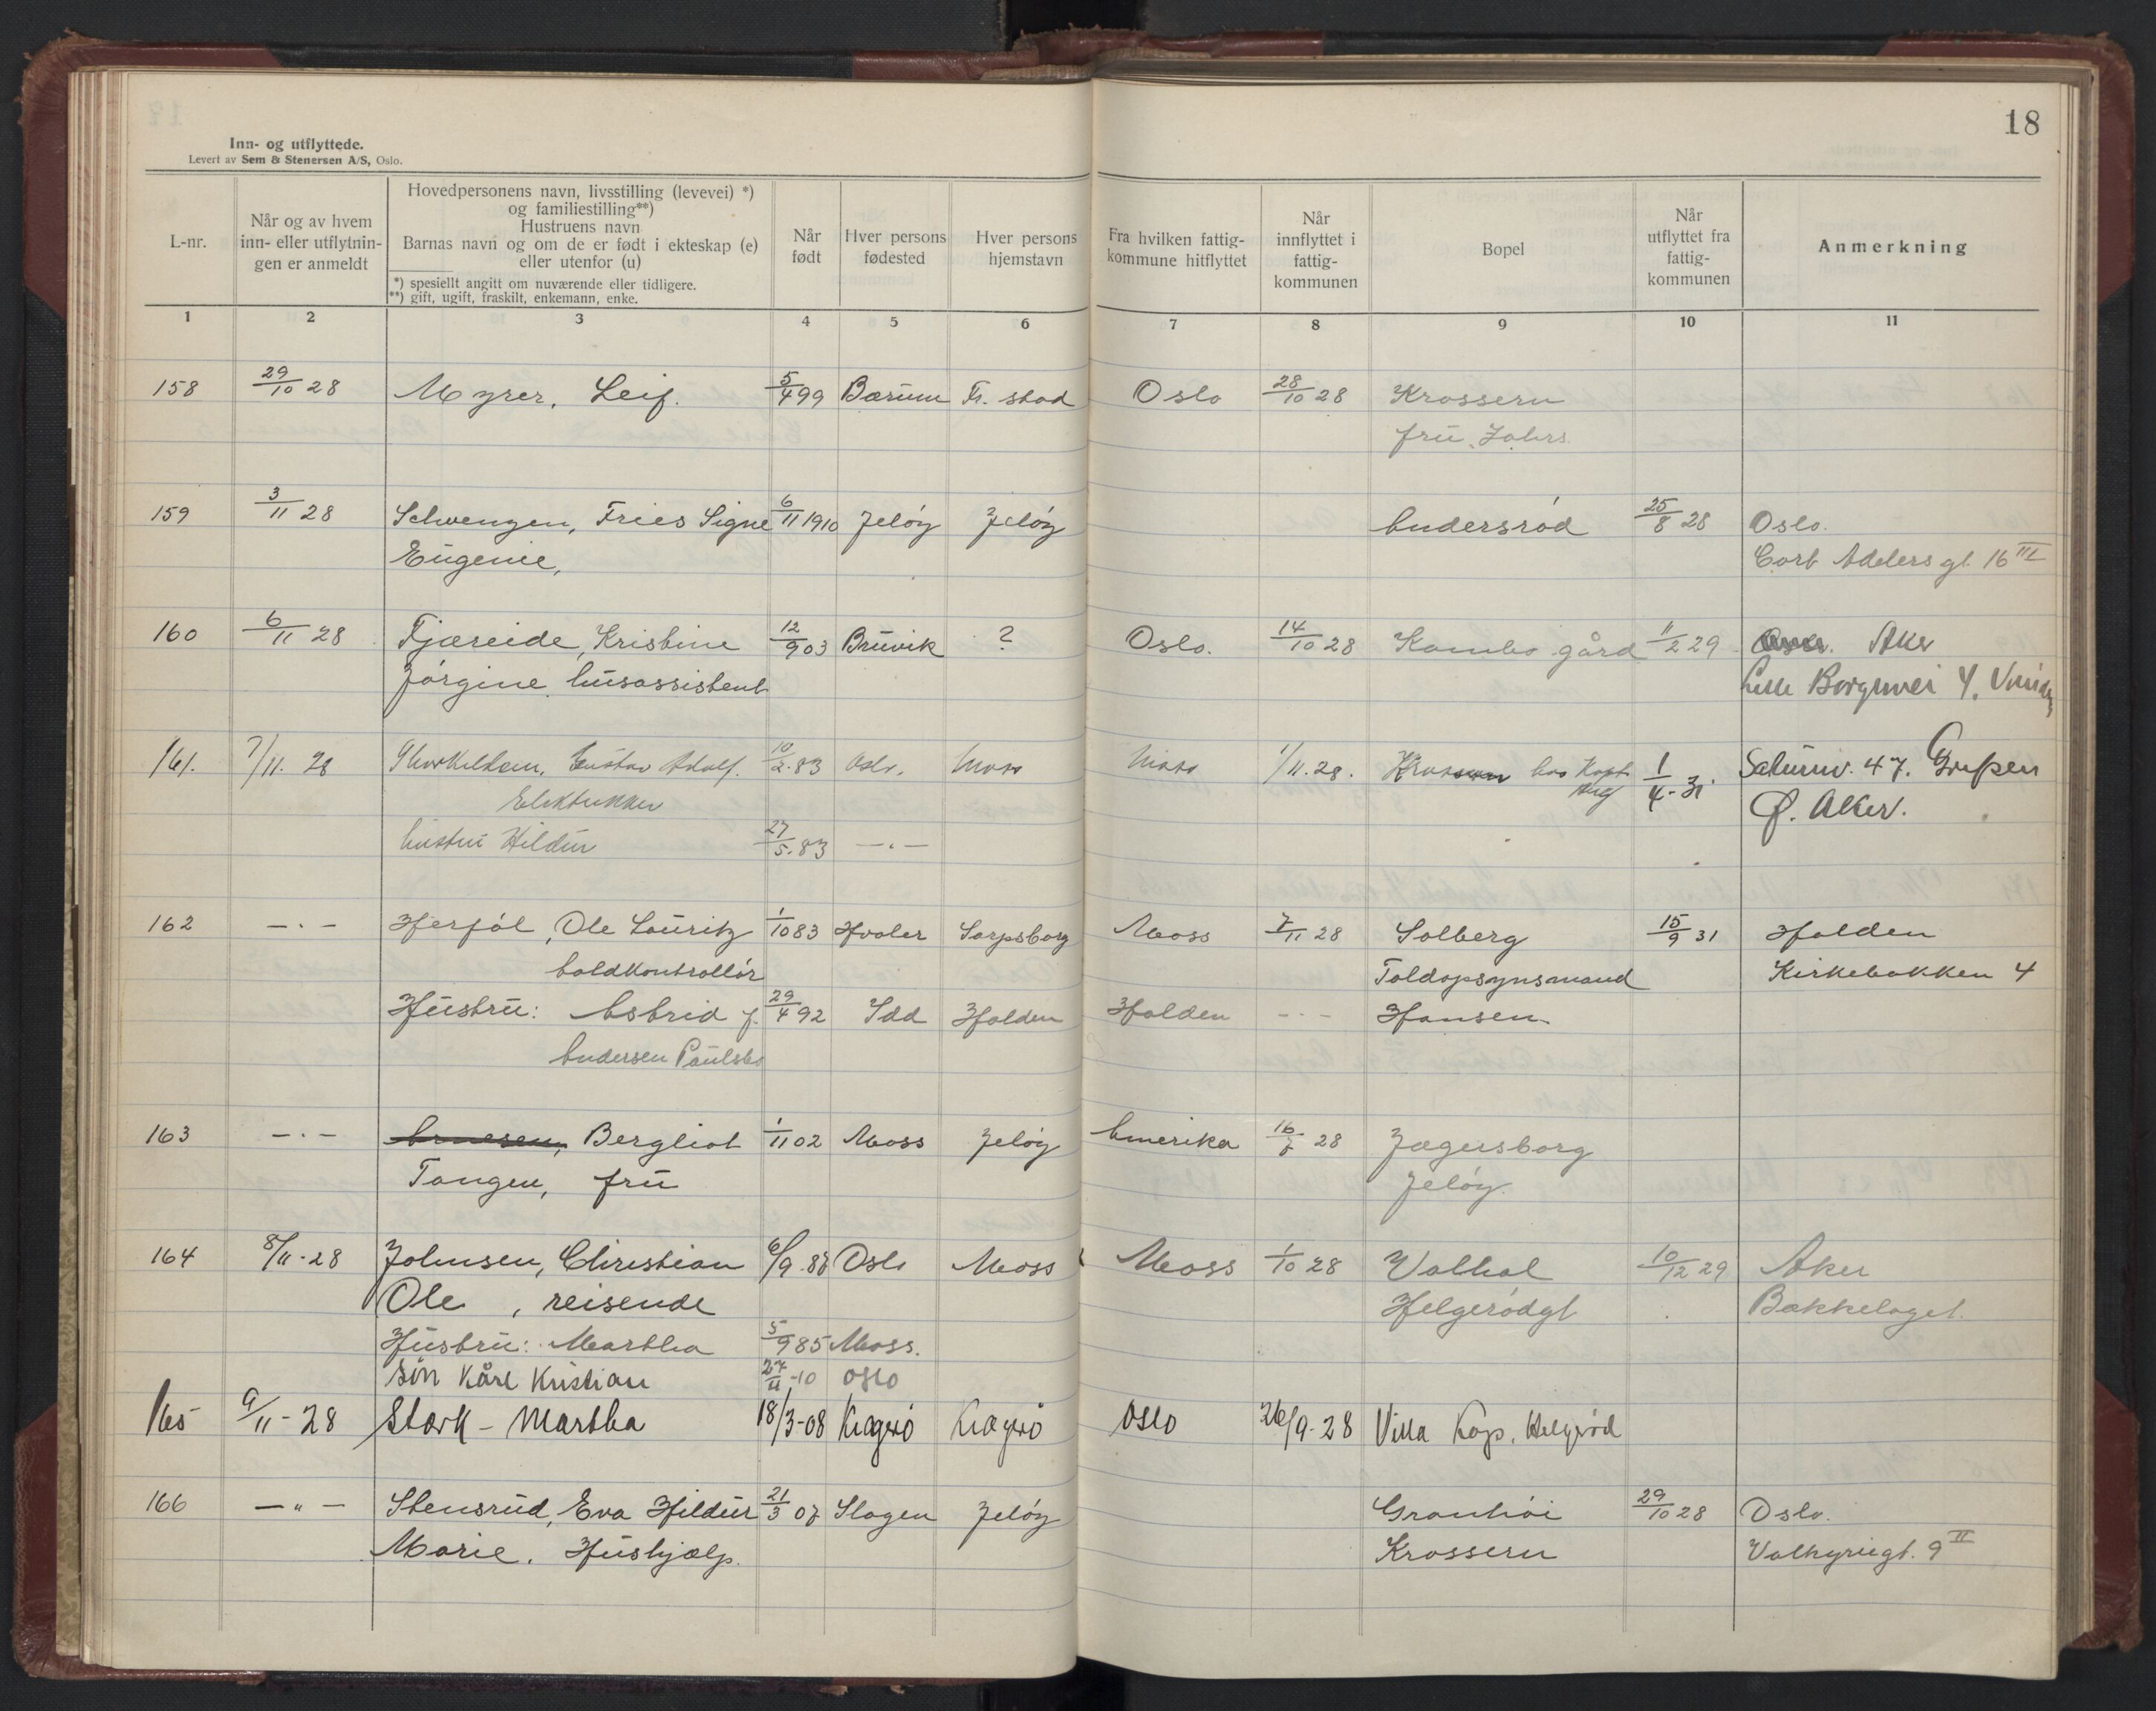 18
Inn- og utflyttede.
Levert av Sem & Stenersen A/S, Oslo.
L-nr.
Når og av hvem inn- eller utflytnin- gen er anmeldt
Hovedpersonens navn, livsstilling (levevei) *)
og familiestilling**)
Hustruens navn
Barnas navn og om de er født i ekteskap (e)
eller utenfor (u)
*) spesielt angitt om nuværende eller tidligere.
**) gift, ugift, fraskilt, enkemann, enke.
Når født
Hver persons fødested
Hver persons hjemstavn
Fra hvilken fattig- kommune hitflyttet
Når innflyttet i fattig- kommunen
Bopel
Når utflyttet fra fattig- kommunen
Anmerkning
1 2 3 4 5 6 7 8 9 10 11
158 29/10 28 Myrer, Leif. 5/4 99 Bærum Fr. stad Oslo 28/10 28 Krossern
frü
159 3/11 28 Schwenzen, Fries Signe 6/11 1910 Jeløy Jeløy Andersrød 25/8 28 Oslo.
Eügenie, Cort Adelers gt. 16 III
160 6/11 28 Fjæreide, Kristine 12/9 03 Brüvik ? Oslo. 14/10 28 Kambo gård 11/2 29 Aker
Jørgine, hüsassistent Lille Borgenvei 4.
161. 7/11. 28 Thorkildsen, Güstav Adolf. 10/2. 83 Oslo. Moss Moss 1/11. 28. Krossern hos Kapt. 1/4 - 31. Satürnv. 47. Grefsen
Elektriker Ø. Aker.
hüstrü Hildür 27/5. 83 — . —
162 — . — Herføl, Ole Laüritz 1/10 83 Hvaler Sarpsborg Moss 7/11 28 Solberg 15/9 31 Halden
toldkontrollør Toldopsynsmand Kirkebakken 4
Hüstrü: Astrid f. 29/4 92 Idd Halden Halden — . — Hansen
Andersen Paülsbo
163 — . — Arnesen, Bergliot 1/11 02 Moss Jeløy Amerika 16/7 28 Jægersborg
Tangen, frü Jeløy.
164 8/11 - 28 Johnsen, Christian 6/9 . 88 Oslo Moss Moss 1/10 28 Valhal 10/12 29 Aker
Ole , reisende Helgerødgt Bækkelaget.
Hüstrü: Martha 5/9 85 Moss.
Søn Kåre Kristian 27/11 - 10 Oslo
165 9/11 - 28 Stork - Martha 18/3 - 08 Kragerø Kragerø Oslo 26/9 - 28 Villa Kap. Helgerød
166 — „ — Stensrüd, Eva Hildür 21/3 07 Slagen Jeløy Granhøi 29/10 28 Oslo.
Marie. Hüshjælp. Krossern Valkyriegt. 9 II